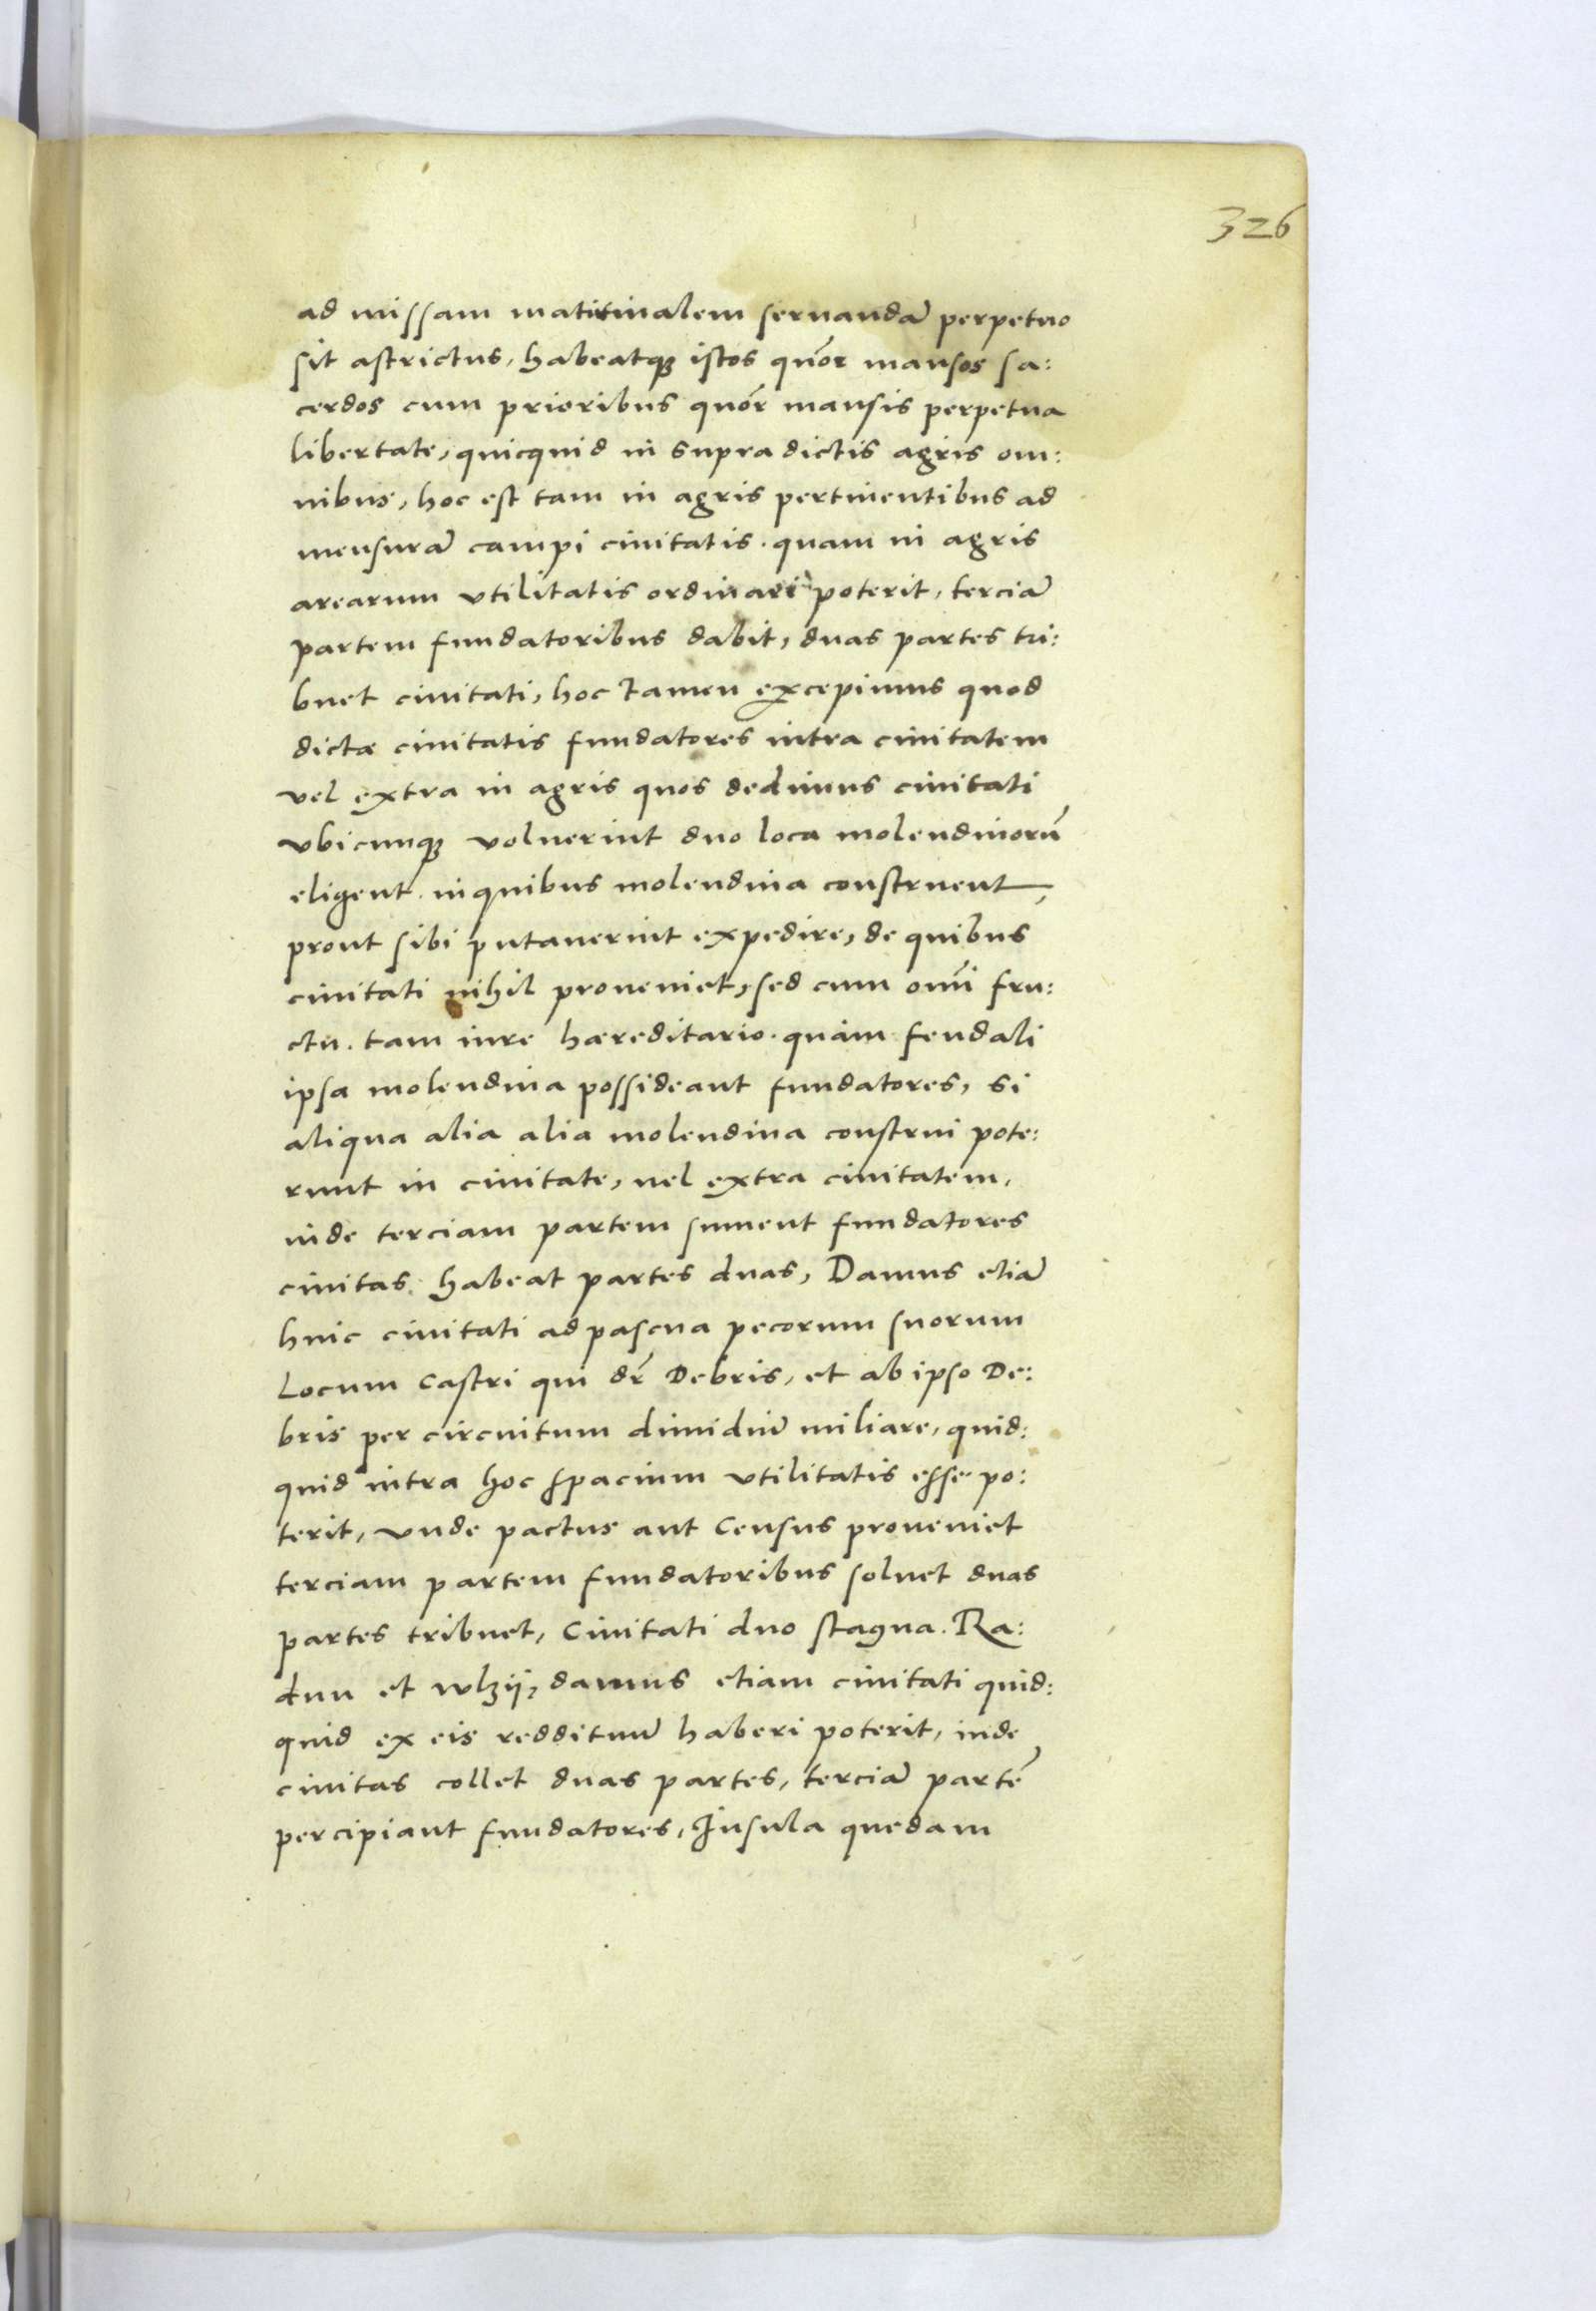 326
ad missam matutinalem seruandā perpetuo
sit astrictus, habeatq̃ istos quõr mansos sa:
cerdos cum prioribus quõr mansis perpetua
libertate, quicquid in supra dictis agris om:
nibus, hoc est tam in agris pertinentibus ad
mensurā campi ciuitatis. quam in agris
arearum vtilitatis ordinari poterit, terciā
partem fundatoribus dabit, duas partes tri:
buet ciuitati, hoc tamen excepimus quod
dictæ ciuitatis fundatores intra ciuitatem
vel extra in agris quos dedimus ciuitati
vbicunq̃ voluerint duo loca molendinorū
eligent. in quibus molendina construent,
prout sibi putauerint expedire, de quibus
ciuitati nihil proueniet, sed cum omī fru:
ctu. tam iure hæreditario. quàm feudali
ipsa molendina possideant fundatores, si
aliqua alia alia molendina construi pote:
runt in ciuitate, uel extra ciuitatem,
inde terciam partem sument fundatores
ciuitas habeat partes duas, Damus etiā
huic ciuitati ad pascua pecorum suorum
Locum castri qui dr̃ Debris, et ab ipso De:
bris per circuitum dimidiū miliare, quid:
quid intra hoc spacium vtilitatis esse po:
terit, vnde pactus aut Census proueniet
terciam partem fundatoribus soluet duas
partes tribuet, Ciuitati duo stagna. Ra:
duu et wlzij, damus etiam ciuitati quid:
quid ex eis reddituū haberi poterit, inde
ciuitas collet duas partes, terciā partē
percipiant fundatores, Insula quedam